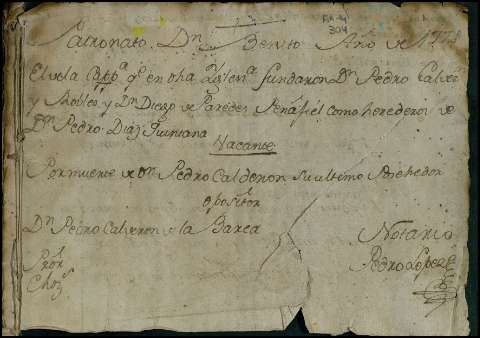 AA-4
304
Patronato Dn Benito Año de 177
El de la Capp.a q.e en dha Yglen.a fundaron Dn Pedro Calde
y Robles, y Dn Diego de Paredes Peñafiel como herederos de
Dn Pedro Diaz Quintana
Vacante
Por muerte de Dn Pedro Calderon su ultimo Posehedor
Opositor
Dn Pedro Calderon de la Barca
Notario
Pedro Lopez